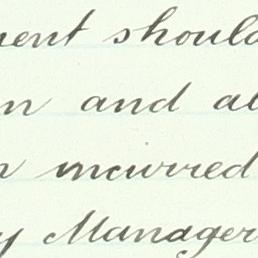 ment should
n and al
n incurred
y Manager